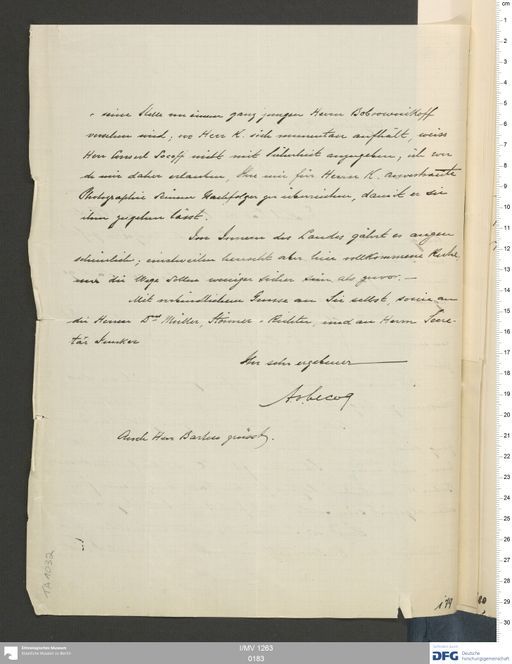 seine Stelle von einem ganz jungen Herrn Bobrownikoff
versehen wird; wo Herr K. sich momentan aufhält, weiss
Herr Consul nicht mit Sicherheit anzugeben; ich werde
mir daher erlauben, die mir für Herrn K. anvertraute
Photographie seinem Nachfolger zu überreichen, damit er sie
ihm zugehen lasst.
Im Innern des Landes gährt es augen
scheinlich; einstweilen herrscht aber hier vollkommene Ruhe,
nur die Wege sollen weniger sicher sein als zuvor. —
Mit verbindlichem Grusse an Sie selbst, sowie an
die Herren Drs Müller, Stönner & Richter, und an Herrn Secre-
tär Juncker
Ihr sehr ergebener
A v Lecoq
Auch Herr Bartus grüsst.
TA 1032
I/MV 1263
0183
Ethnologisches Museum
Staatliche Museen zu Berlin
DFG Deutsche
Forschungsgemeinschaft
cm
1
2
3
4
5
6
7
8
9
10
11
12
13
14
15
16
17
18
19
20
21
22
23
24
25
26
27
28
29
30